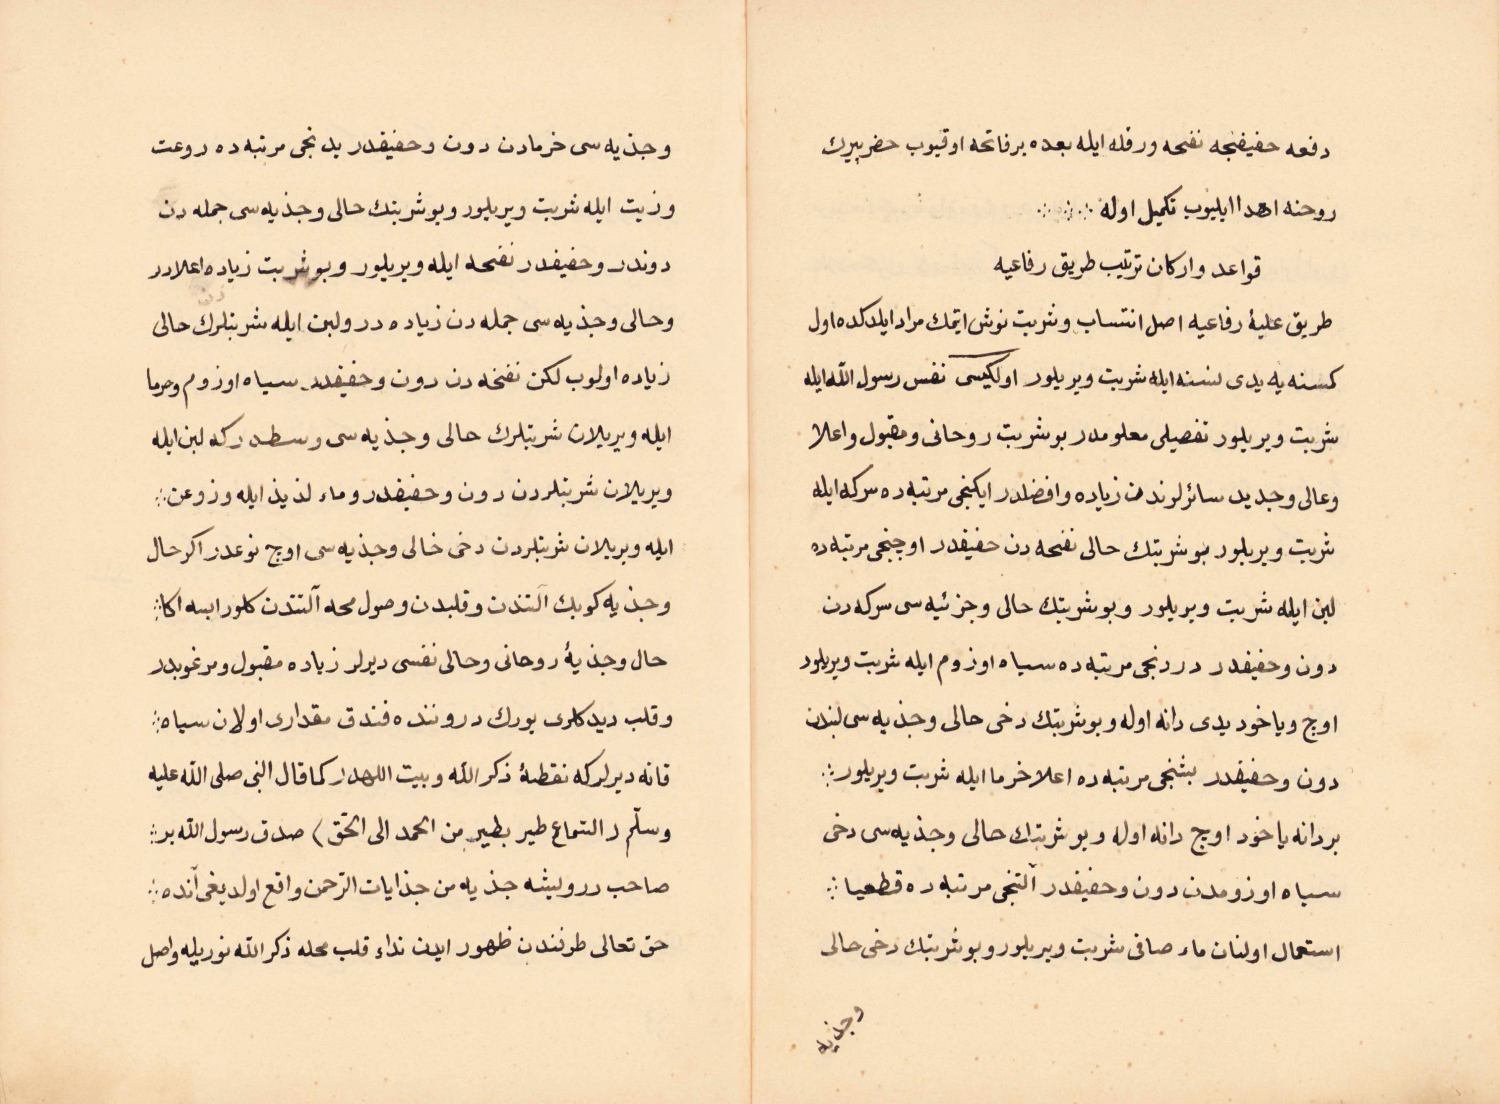 دفعه حفیفجه نفحه ورقله ایله بعده برفاتحه اوقیوب حضر پیرك
روحنه اهدا ایلیوب تکمیل اوله
قواعد وارکان ترتیب طریق رفاعیه
طریق علیۀ رفاعیه اصل انتساب وشربت نوش ایتمك مراد ایلدکده اول
کسنه یه یدی نسنه ایله شربت ویریلور اولکیسی نفس رسول الله ایله
شربت ویریلور تفصیلی معلومدر بوشربت روحانی ومقبول واعلا
وعالی وجدید سائرلوندن زیاده وافضلدر ایکنجی مرتبه ده سرکه ایله
شربت ویریلور بوشربتك حالی نفحه دن حفیفدر اوچنجی مرتبه ده
لبن ایله شربت ویریلور وبوشربتك حالی وجزئیه سی سرکه دن
دون وحفیفدر دردنجی مرتبه ده سیاه اوزوم ایله شربت ویریلور
اوچ ویاخود یدی دانه اوله وبوشربتك دخی حالی وجذیه سی لبندن
دون وحفیفدر بشنجی مرتبه ده اعلا خرما ایله شربت ویریلور
بردانه یاخود اوچ دانه اوله وبوشربتك حالی وجذیه سی دخی
سیاه اوزومدن دون وحفیفدر آلتنجی مرتبه ده قطعیا
استعمال اولنان ماء صافی شربت ویریلور وبوشربتك دخی حالی
وجذیه
وجذیه سی خرمادن دون وحفیفدر یدنجی مرتبه ده روعت
وزیت ایله شربت ویریلور وبوشربتك حالی وجذیه سی جمله دن
دوندر وحفیفدر نفحه ایله ویریلور وبوشربت زیاده اعلادر
وحالی وجذیه سی جمله دن زیاده در ولبن ایله شربتلرك حالی
زیاده اولوب لکن نفخه دن دون وحفیفدر سیاه اوزوم وخرما
ایله ویریلان شربتلرك حالی وجذیه سی وسطدر که لبن ایله
ویریلان شربتلردن دون وحفیفدر وماء لذیذ ایله وزوعن
ایله ویریلان شربتلردن دخی حالی وجذیه سی اوچ نوعدر اکر حال
وجذیه کوبك آلتندن وقلبدن وصول محه آلتندن کلور ایسه اکا
حال وجذیۀ روحانی وحالی نفسی دیرلر زیاده مقبول ومرغوبدر
وقلب دیدکلری یورك درونده فندق مقداری اولان سیاه
قانه دیرلر که نقطۀ ذکر الله وبیت اللهدر کما قال النبی صلی الله علیه
وسلّم ( السماع طیر یطیر من الحمد الی الحق ) صدق رسول الله بر
صاحب درویشه جذیه من جذایات الرحمن واقع اولدیغی آنده
حق تعالی طرفندن ظهور ایدن نداء قلب محله ذکر الله نوریله واصل